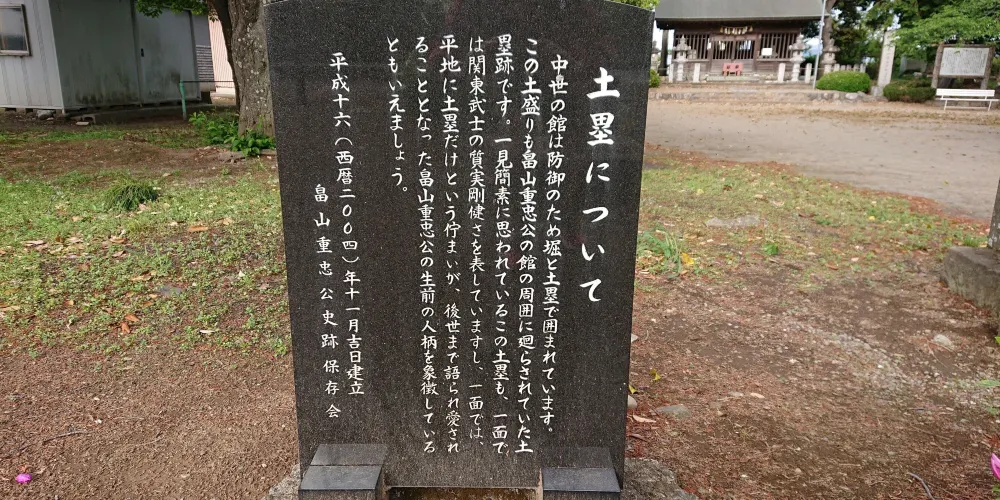 土塁について
中世の館は防御のため堀と土塁で囲まれています。
この土盛りも畠山重忠公の館の周囲に廻らされていた土
塁跡です。一見簡素に思われているこの土塁も、一面で
は関東武士の質実剛健さを表していますし、一面では、
平地に土塁だけという佇まいが、後世まで語られ愛され
ることとなった畠山重忠公の生前の人柄を象徴している
ともいえましょう。
平成十六(西暦二〇〇四)年十一月吉日建立
畠山重忠公史跡保存会